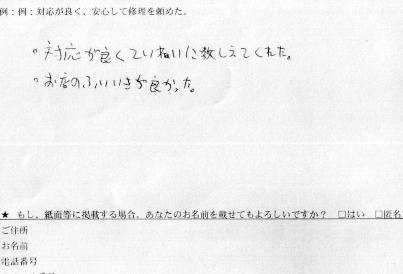 例：例：対応が良く、安心して修理を頼めた。
。対応が良くていねいに教しえてくれた。
。お店のふいいきが良かった。
★ もし、紙面等に掲載する場合、あなたのお名前を載せてもよろしいですか？ □はい □匿名
ご住所
お名前
電話番号